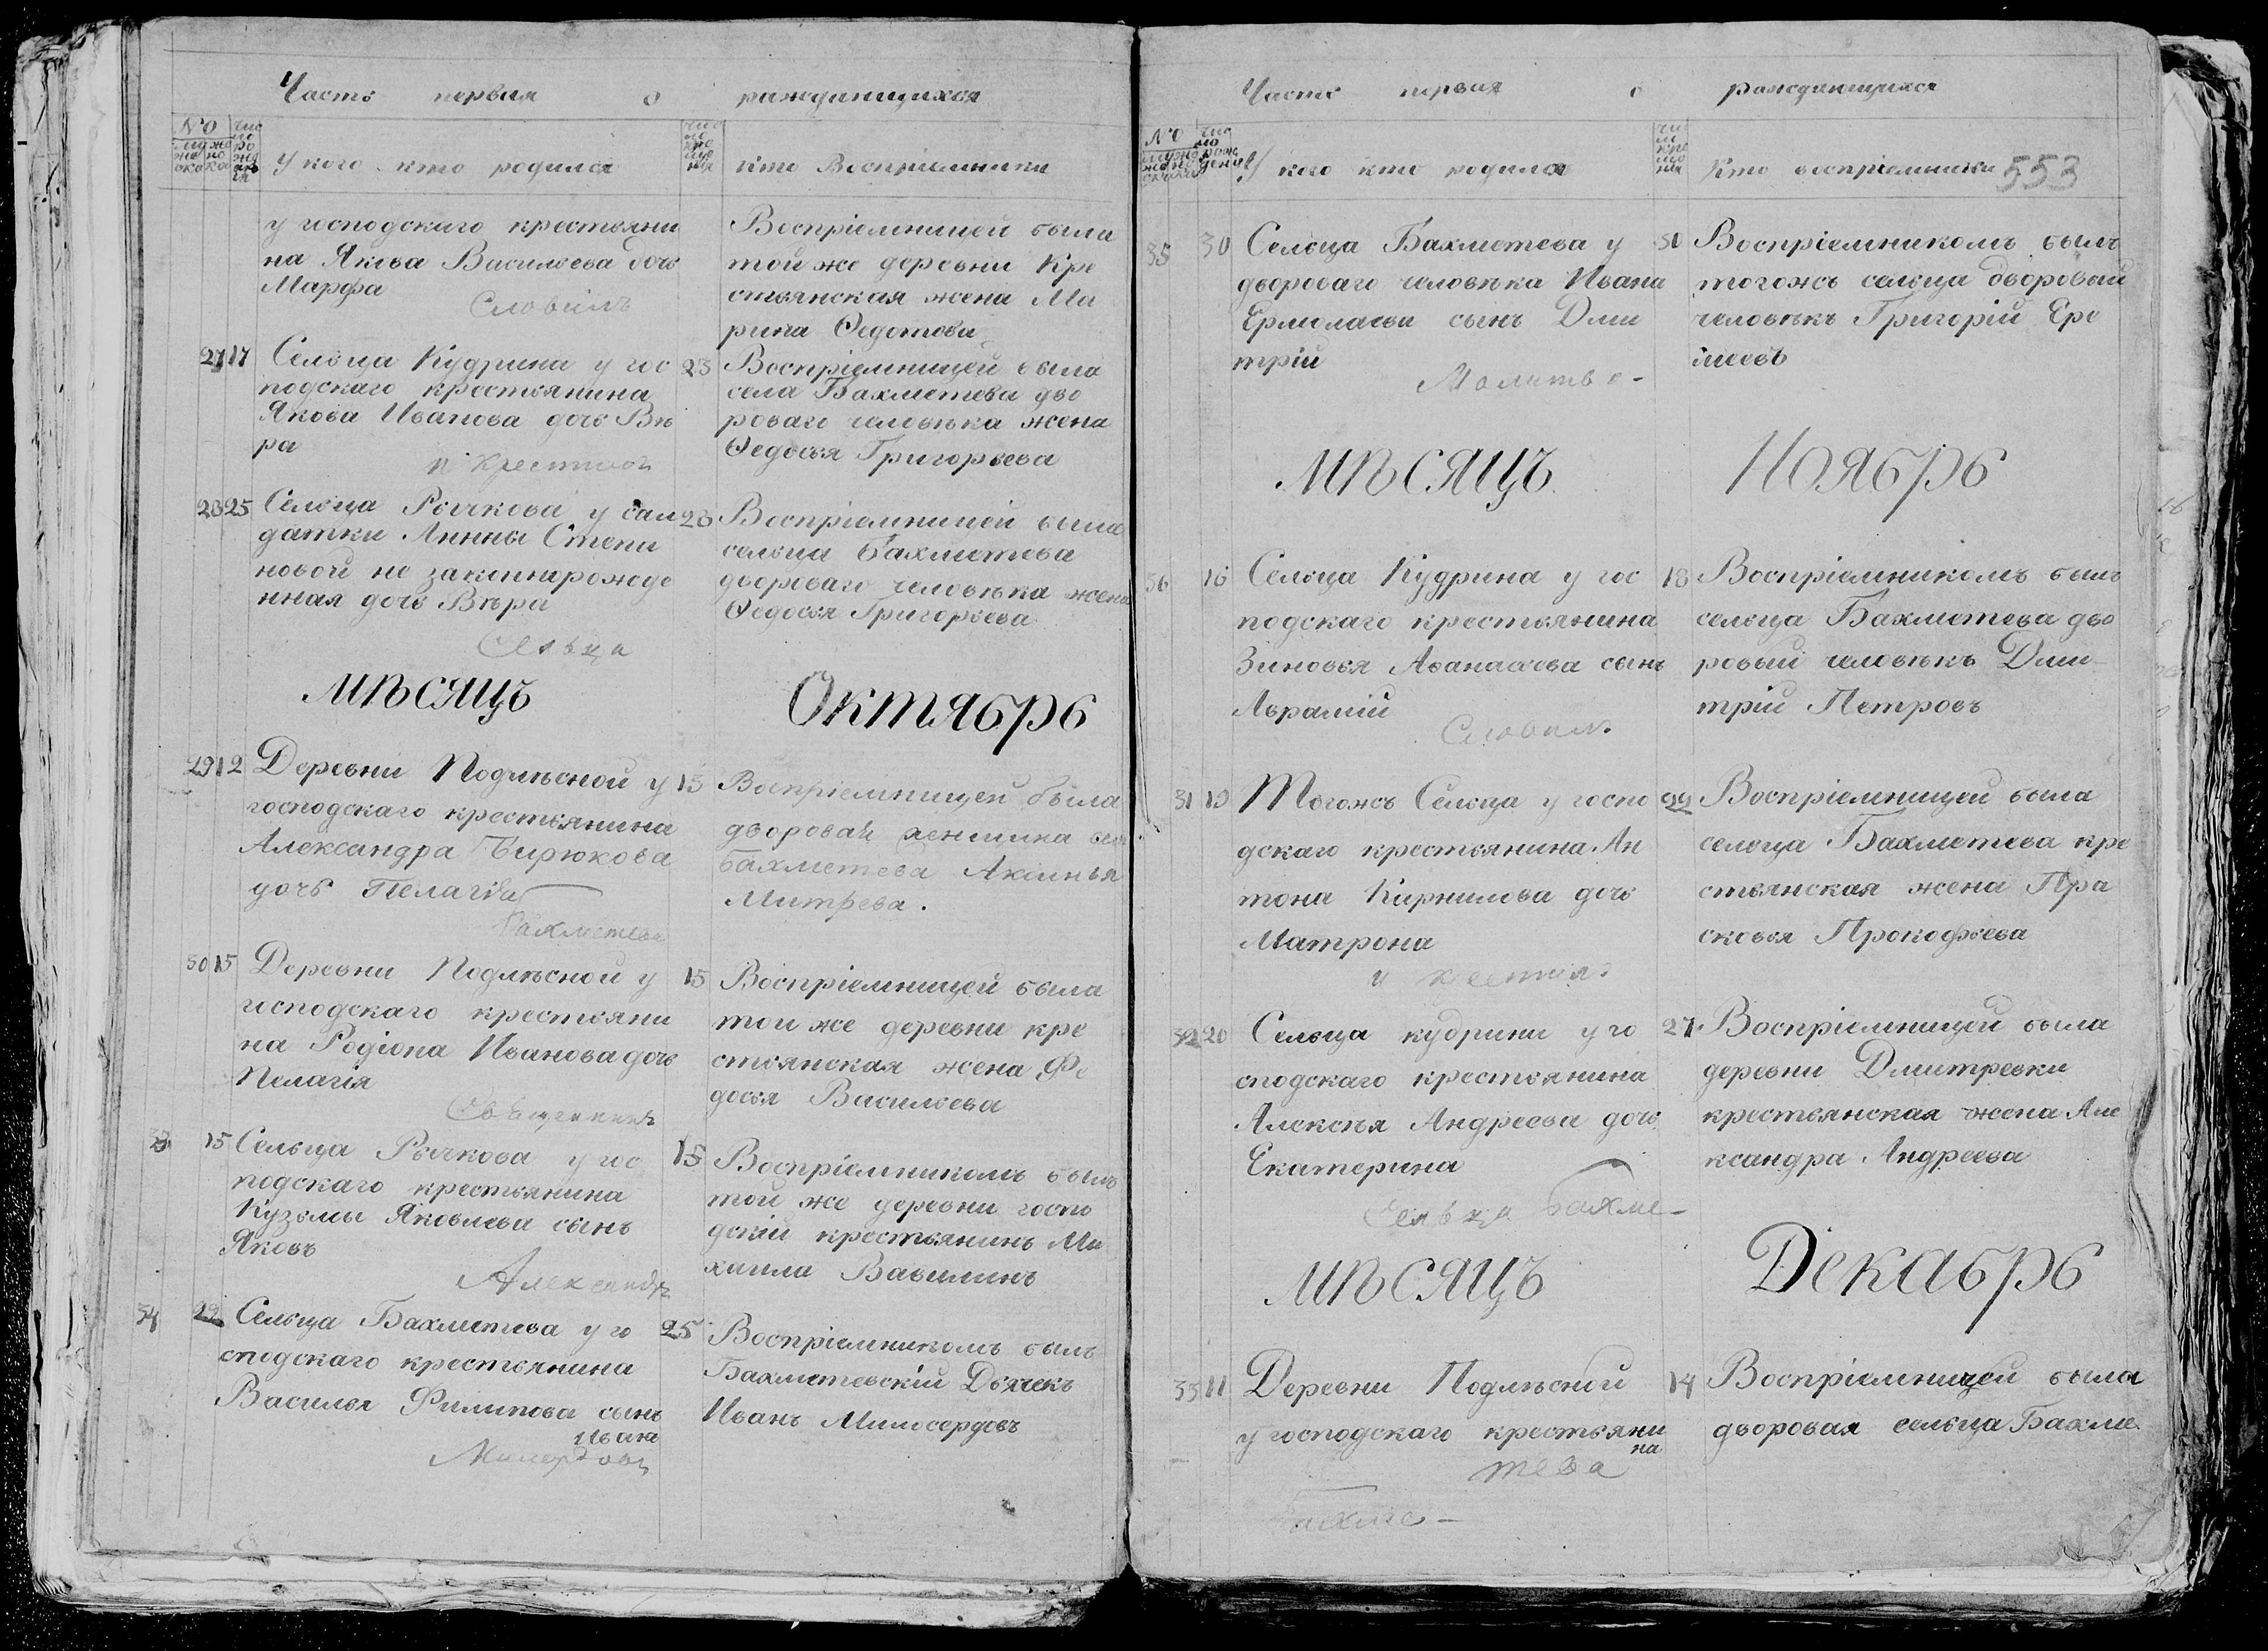 Часть первая о раждающихся
№
у кого кто родился
кто Восприемники
у господскаго крестьяни
на Якова Васильева дочь
Марфа
Воспріемницей была
той же деревни кре
стьянская жена Ма
рина Ѳедотова
27 17 Сельца Кудрина у гос
подскаго крестьянина
Якова Иванова дочь Вѣ
ра
и крестилъ
23 Воспріемницей была
села Бахметева дво
роваго человѣка жена
Ѳедосья Григорьева
28 25 Сельца Рычкова у сал
датки Анны Степа
новой не законнорожде
нная дочь Вѣра
Сельца
28 Воспріемницей была
сельца Бахметева
двороваго человѣка жена
Ѳедосья Григорьева
мѣсяцъ Октябрь
29 12 Деревни Подлѣсной у
господскаго крестьянина
Александра Бирюкова
дочь Пелагія
Бахметева
13 Воспріемницей была
дворовая женщина
Бахметева Акулина
Митрева.
30 15 Деревни Подлѣсной у
господскаго крестьяни
на Родіона Иванова дочь
Пелагія
Священникъ
15 Воспріемницей была
той же деревни кре
стьянская жена Фе
досья Васильева
15 Сельца Рычкова у гос
подскаго крестьянина
Кузьмы Яковлева сынъ
Яковъ
Александръ
15 Воспріемникомъ былъ
той же деревни госпо
дскій крестьянинъ Ми
хаила Вавилинъ
34 22 Сельца Бахметева у го
сподскаго крестьянина
Василья Филипова сынъ
Иванъ
25 Воспріемникомъ былъ
Бахметевскій Дьячекъ
Иванъ Милосердовъ
Часть первая о раждающихся
№
У кого кто родился
Кто воспріемники 553
35 30 Сельца Бахметева у
двороваго человѣка Ивана
Ермолаева сынъ Дми
трій
Молитво-
30 Воспріемникомъ былъ
тогожъ сельца дворовый
человѣкъ Григорій Ере
мѣевъ
мѣсяцъ Ноябрь
36 16 Сельца Кудрина у гос
подскаго крестьянина
Зиновья Аѳанасьева сынъ
Авраамій
18 Воспріемникомъ былъ
сельца Бахметева дво
ровый человѣкъ Дми-
трій Петровъ
31 19 Тогожъ Сельца у госпо
дскаго крестьянина Ан
тона Карнилова дочь
Матрона
и крестилъ
22 Воспріемницей была
сельца Бахметева кре
стьянская жена Пра
сковья Прокофьева
32 20 Сельца кудрина у го
сподскаго крестьянина
Алексѣя Андреева дочь
Екатерина
Сельца Бахме-
27 Воспріемницей была
деревни Дмитревки
крестьянская жена Але
ксандра Андреева
мѣсяцъ Декабрь
33 11 Деревни Подлѣсной
у господскаго крестьяни
на
тева
Бахме-
14 Воспріемницей была
дворовая сельца Бахме